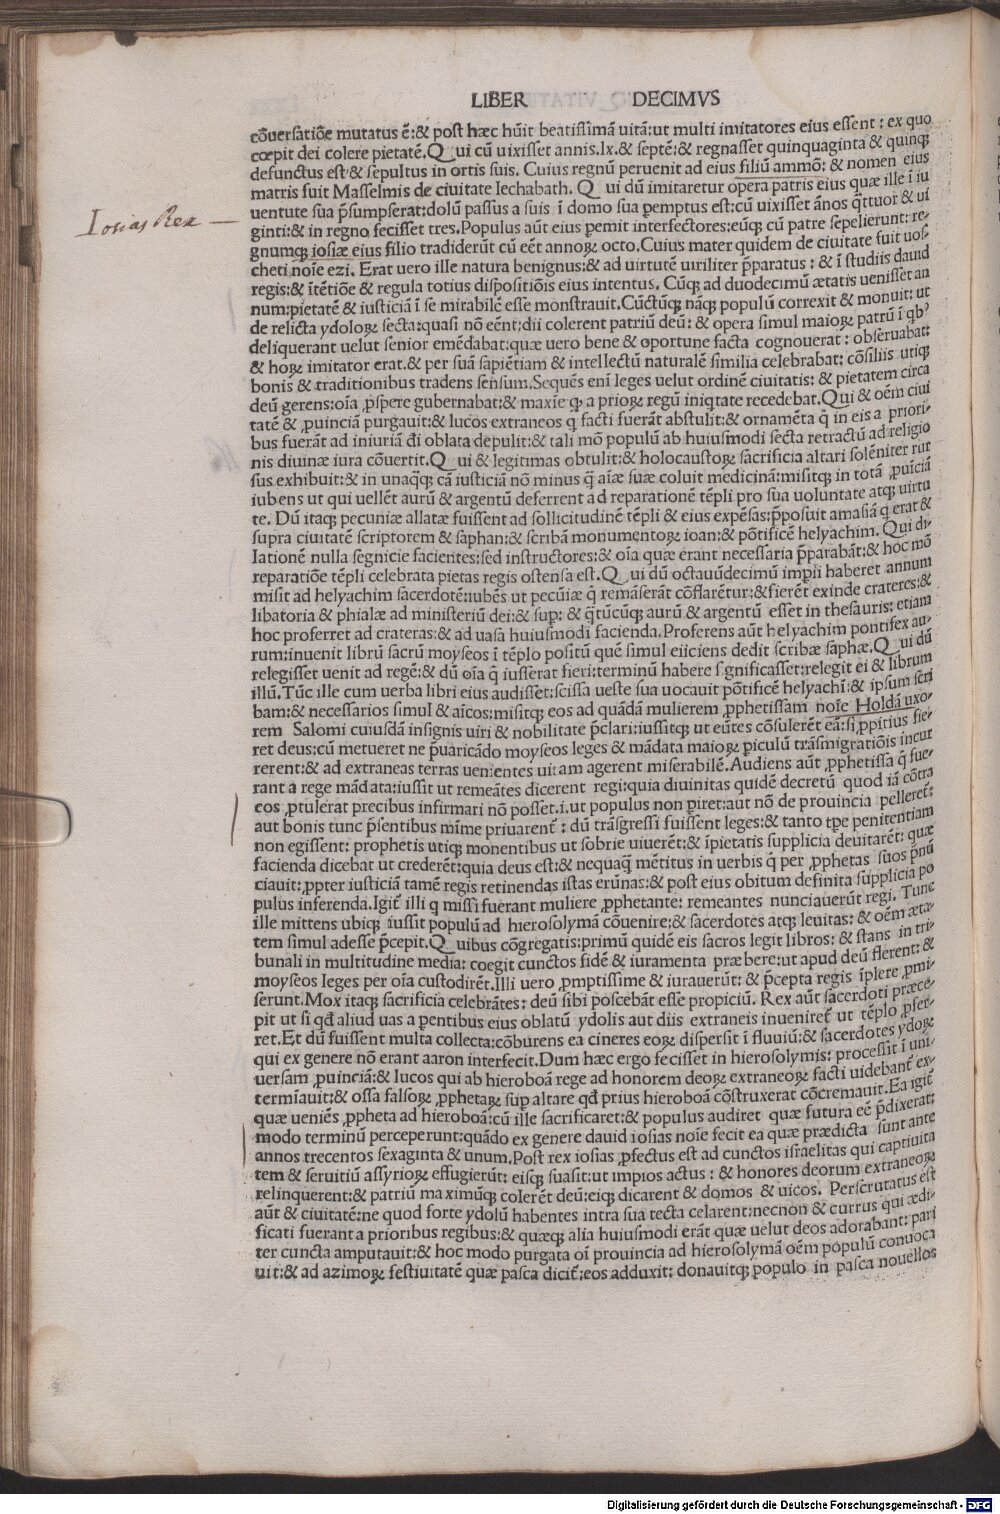 LIBER DECIMVS
cōuersatiōe mutatus ē:& post hæc hūit beatissimā uitā:ut multi imitatores eius essent : ex quo
cœpit dei colere pietatē.Qui cū uixisset annis.lx.& septē:& regnasset quinquaginta & quinqꝫ
defunctus est & sepultus in ortis suis. Cuius regnū peruenit ad eius filiū ammō: & nomen eius
matris fuit Masselmis de ciuitate Iechabath. Qui dū imitaretur opera patris eius quæ ille ī iu
uentute sua p̄sumpserat:dolū passus a suis ī domo sua peremptus est:cū uixisset ānos q̄ttuor & ui
Iosias Rex
ginti:& in regno fecisset tres.Populus aūt eius pemit interfectores:eūqꝫ cū patre sepelierunt: re-
gnumqꝫ iosiæ eius filio tradiderūt cū eēt annoꝝ octo.Cuius mater quidem de ciuitate fuit uos-
cheti noīe ezi. Erat uero ille natura benignus:& ad uirtutē uiriliter p̄paratus : & ī studiis dauid
regis:& ītētiōe & regula totius dispositiōis eius intentus. Cūqꝫ ad duodecimū ætatis uenisset an
num:pietatē & iusticiā ī se mirabilē esse monstrauit.Cūctūqꝫ nāqꝫ populū correxit & monuit: ut
de relicta ydoloꝝ secta:quasi nō eēnt:dii colerent patriū deū: & opera simul maioꝝ patrū ī qbꝰ
deliquerant uelut senior emēdabat:quæ uero bene & oportune facta cognouerat : obseruabat:
& hoꝝ imitator erat.& per suā sapiētiam & intellectū naturalē similia celebrabat: cōsiliis utiqꝫ
bonis & traditionibus tradens sensum.Sequēs enī leges uelut ordinē ciuitatis: & pietatem circa
deū gerens:oīa ꝓspere gubernabat:& maxīe qꝫ a prioꝝ regū iniqtate recedebat.Qui & oēm ciui
tatē & ꝓuinciā purgauit:& lucos extraneos q facti fuerāt abstulit:& ornamēta q̄ in eis a priori-
bus fuerāt ad iniuriā đi oblata depulit:& tali mō populū ab huiusmodi secta retractū ad religio
nis diuinæ iura cōuertit.Qui & legitimas obtulit:& holocaustoꝝ sacrificia altari solēniter rur
sus exhibuit:& in unaq̄qꝫ cā iusticiā nō minus q̄ aīæ suæ coluit medicinā:misitqꝫ in totā ꝓuīciā
iubens ut qui uellēt aurū & argentū deferrent ad reparationē tēpli pro sua uoluntate atqꝫ uirtu
te. Dū itaqꝫ pecuniæ allatæ fuissent ad sollicitudinē tēpli & eius expēsas:p̄posuit amasiā q erat &
supra ciuitatē scriptorem & saphan:& scribā monumentoꝝ ioan:& pōtificē helyachim. Qui di-
lationē nulla segnicie facientes:sed instructores:& oīa quæ erant necessaria p̄parabāt:& hoc mō
reparatiōe tēpli celebrata pietas regis ostensa est.Qui dū octauūdecimū impīi haberet annum
misit ad helyachim sacerdotē:iubēs ut pecūiæ q̄ remāserāt cōflarētur:&fierēt exinde crateres:&
libatoria & phialæ ad ministeriū dei:& sup: & q̄tūcūqꝫ aurū & argentū esset in thesauris: etiam
hoc proferret ad crateras:& ad uasa huiusmodi facienda.Proferens aūt helyachim pontifex au-
rum:inuenit librū sacrū moyseos ī tēplo positū quē simul eiiciens dedit scribæ saphæ.Qui dū
relegisset uenit ad regē:& dū oīa q̄ iusserat fieri:terminū habere significasset:relegit ei & librum
illū.Tūc ille cum uerba libri eius audisset:scissa ueste sua uocauit pōtificē helyachī:& ipsum scri
bam:& necessarios simul & aīcos:misitqꝫ eos ad quādā mulierem ꝓphetissam noīe Holdā uxo-
rem Salomi cuiusdā insignis uiri & nobilitate p̄clari:iussitqꝫ ut eūtes cōsulerēt eā:si ꝓpitius fie-
ret deus:cū metueret ne p̄uaricādo moyseos leges & mādata maioꝝ piculū trāsmigratiōis incur
rerent:& ad extraneas terras uenientes uitam agerent miserabilē.Audiens aūt ꝓphetissa q̄ fue-
rant a rege mādata:iussit ut remeātes dicerent regi:quia diuinitas quidē decretū quod iā cōtra
eos ꝓtulerat precibus infirmari nō posset.i.ut populus non piret:aut nō de prouincia pelleret:
aut bonis tunc p̄sentibus mīme priuarent : dū trāsgressi fuissent leges:& tanto tpe penitentiam
non egissent: prophetis utiqꝫ monentibus ut sobrie uiuerēt:& īpietatis supplicia deuitarēt: quæ
facienda dicebat ut crederēt:quia deus est:& nequaq̄ mētitus in uerbis q̄ per ꝓphetas suos p̄nū
ciauit:ꝓpter iusticiā tamē regis retinendas istas erūnas:& post eius obitum definita supplicia po
pulus inferenda.Igit illi q missi fuerant muliere ꝓphetante: remeantes nunciauerūt regi. Tunc
ille mittens ubiqꝫ iussit populū ad hierosolymā cōuenire:& sacerdotes atqꝫ leuitas: & oēm æta-
tem simul adesse p̄cepit.Quibus cōgregatis:primū quidē eis sacros legit libros: & stans in tri-
bunali in multitudine media: coegit cunctos fidē & iuramenta præbere:ut apud deū flerent: &
moyseos leges per oīa custodirēt.Illi uero ꝓmptissime & iurauerūt: & p̄cepta regis īplere ꝓmi-
serunt.Mox itaqꝫ sacrificia celebrātes: deū sibi poscebāt esse propiciū. Rex aūt sacerdoti præce-
pit ut si qđ aliud uas a pentibus eius oblatū ydolis aut diis extraneis inueniret ut tēplo ꝓfer-
ret.Et dū fuissent multa collecta:cōburens ea cineres eoꝝ dispersit ī fluuiū:& sacerdotes ydoꝝ
qui ex genere nō erant aaron interfecit.Dum hæc ergo fecisset in hierosolymis: processit ī uni-
uersam ꝓuinciā:& lucos qui ab hieroboā rege ad honorem deoꝝ extraneoꝝ facti uidebant ex-
termīauit:& ossa falsoꝝ ꝓphetaꝝ sup altare qđ prius hieroboā cōstruxerat cōcremauit.Ea igit
quæ ueniēs ꝓpheta ad hieroboā:cū ille sacrificaret:& populus audiret quæ futura eē p̄dixerat:
modo terminū perceperunt:quādo ex genere dauid iosias noīe fecit ea quæ prædicta sunt ante
annos trecentos sexaginta & unum.Post rex iosias ꝓfectus est ad cunctos israelitas qui captiuita
tem & seruitiū assyrioꝝ effugierūt: eisqꝫ suasit:ut impios actus : & honores deorum extraneoꝝ
relinquerent:& patriū maximūqꝫ colerēt deū:eiqꝫ dicarent & domos & uicos. Perscrutatus est
aūt & ciuitatē:ne quod forte ydolū habentes intra sua tecta celarent:necnon & currus qui ædi-
ficati fuerant a prioribus regibus:& quæqꝫ alia huiusmodi erāt quæ uelut deos adorabant: pari
ter cuncta amputauit:& hoc modo purgata oī prouincia ad hierosolymā oēm populū conuoca
uit:& ad azimoꝝ festiuitatē quæ pasca dicit:eos adduxit: donauitqꝫ populo in pasca nouellos
Digitalisierung gefördert durch die Deutsche Forschungsgemeinschaft - DFG